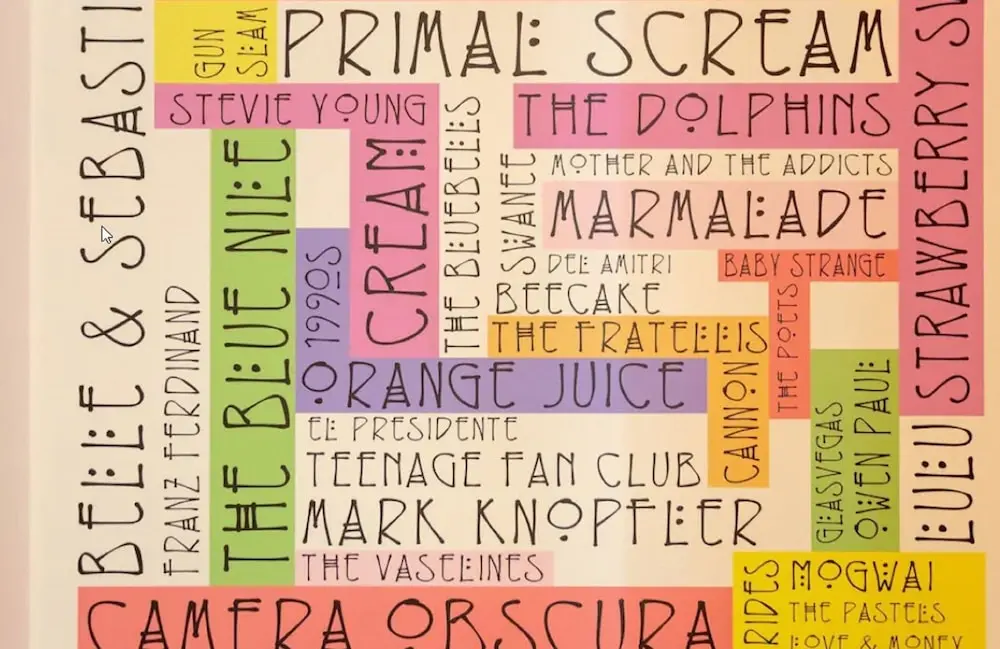 BELLE & SEBASTI
GUN
SLAM
PRIMAL SCREAM
STEVIE YOUNG
THE DOLPHINS
STRAWBERRY SW
THE BLUE NILE
CREAM
THE BLUEBELLS
SWANEE
MOTHER AND THE ADDICTS
MARMALADE
DEL AMITRI
BABY STRANGE
BEECAKE
1990S
FRANZ FERDINAND
THE FRATELLIS
THE POETS
ORANGE JUICE
CANNON
GLASVEGAS
OWEN PAUL
LULU
EL PRESIDENTE
TEENAGE FAN CLUB
MARK KNOPFLER
THE VASELINES
CAMERA OBSCURA
RIDES
MOGWAI
THE PASTELS
LOVE & MONEY